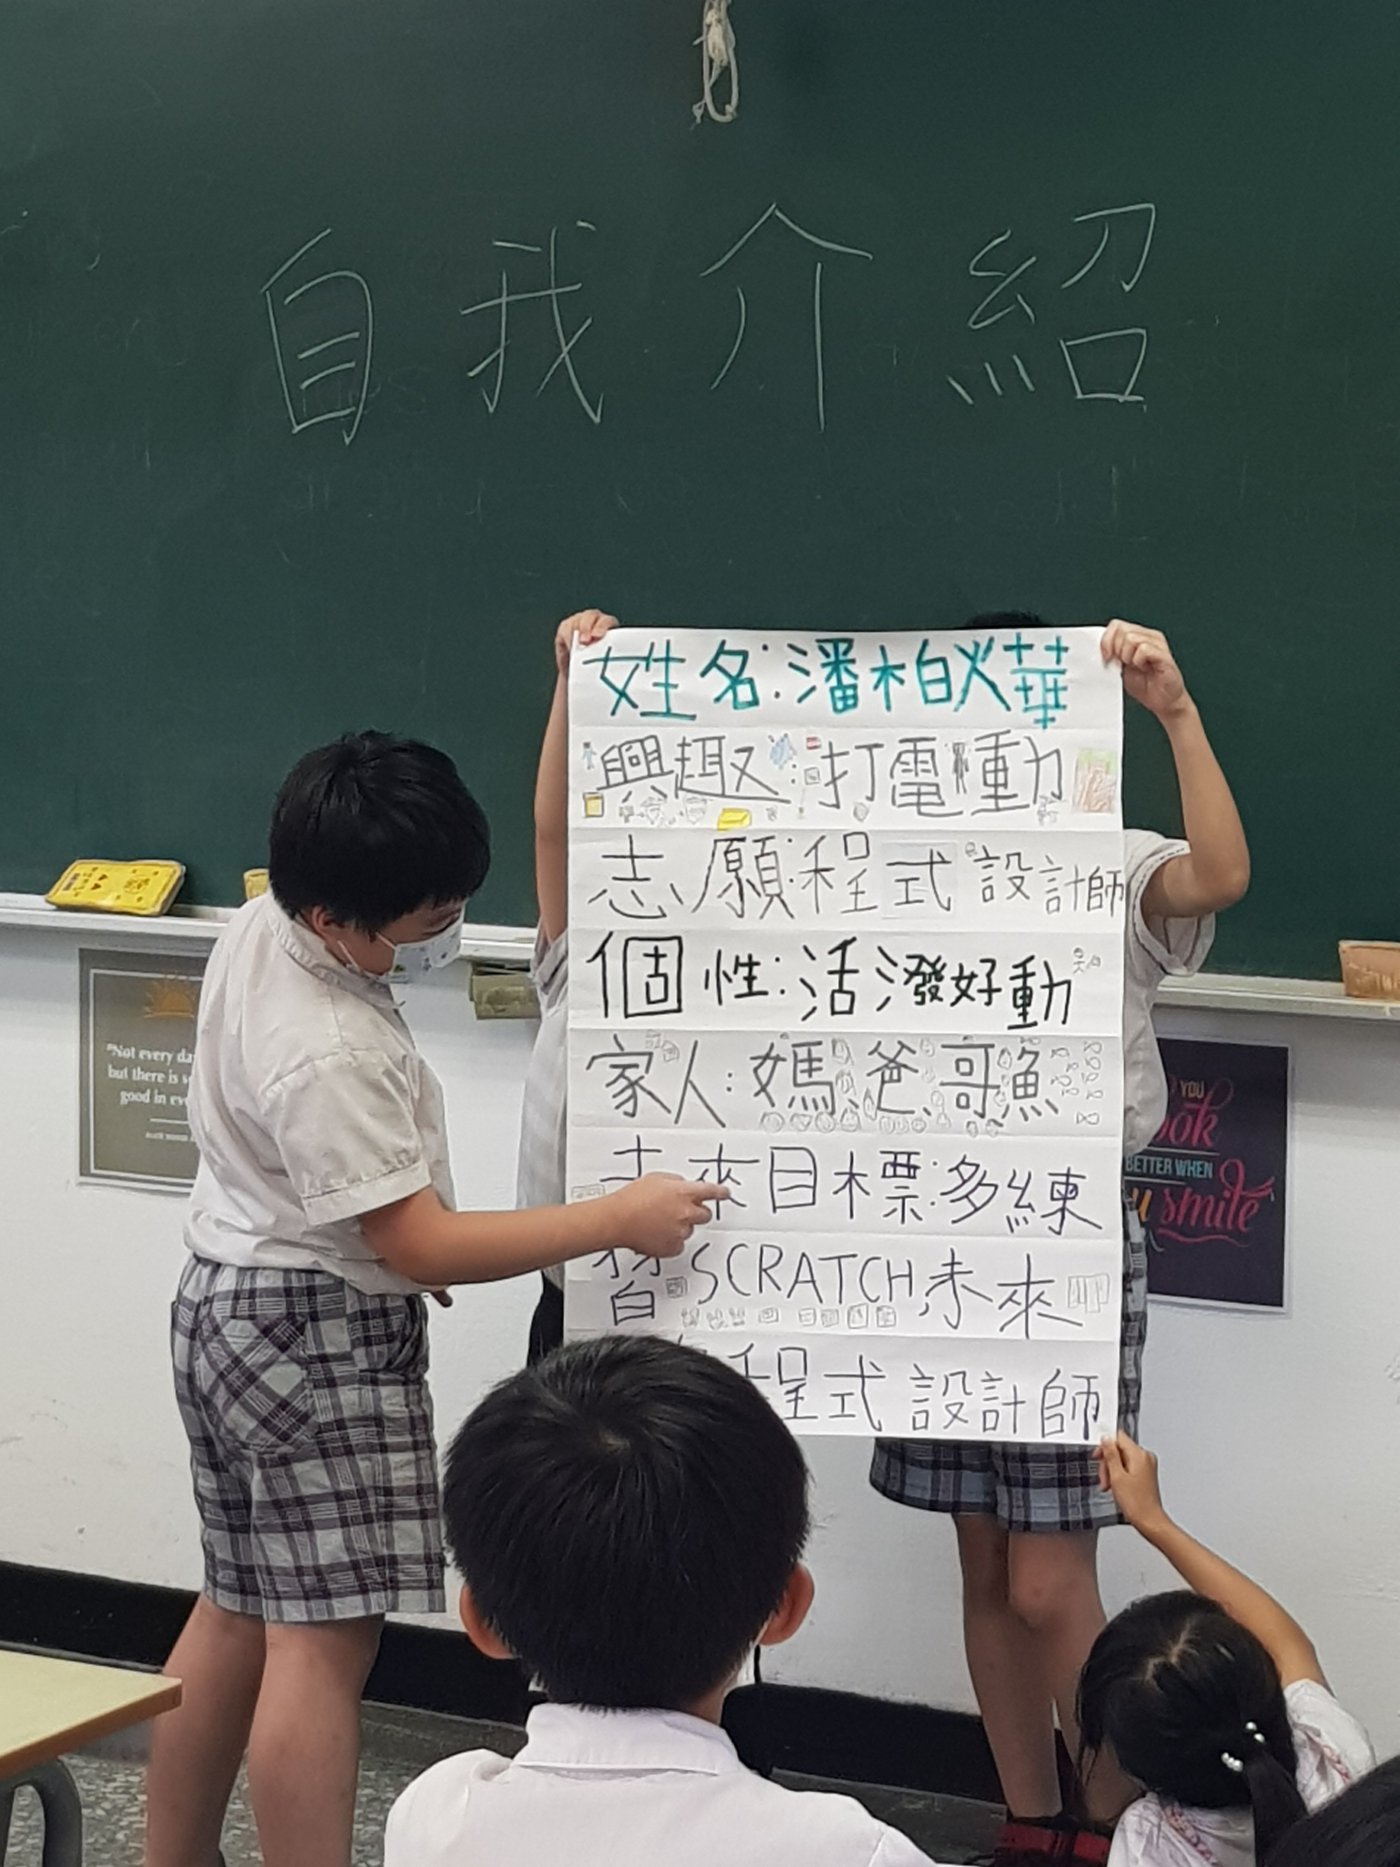 自我介紹
姓名:潘柏燁
興趣:打電動
志願:程式設計師
個性:活潑好動
家人:媽、爸、哥、魚
未來目標:多練
習SCRATCH,未來
程式設計師
"Not every da
but there is s
good in eve
YOU
look
BETTER WHEN
smile